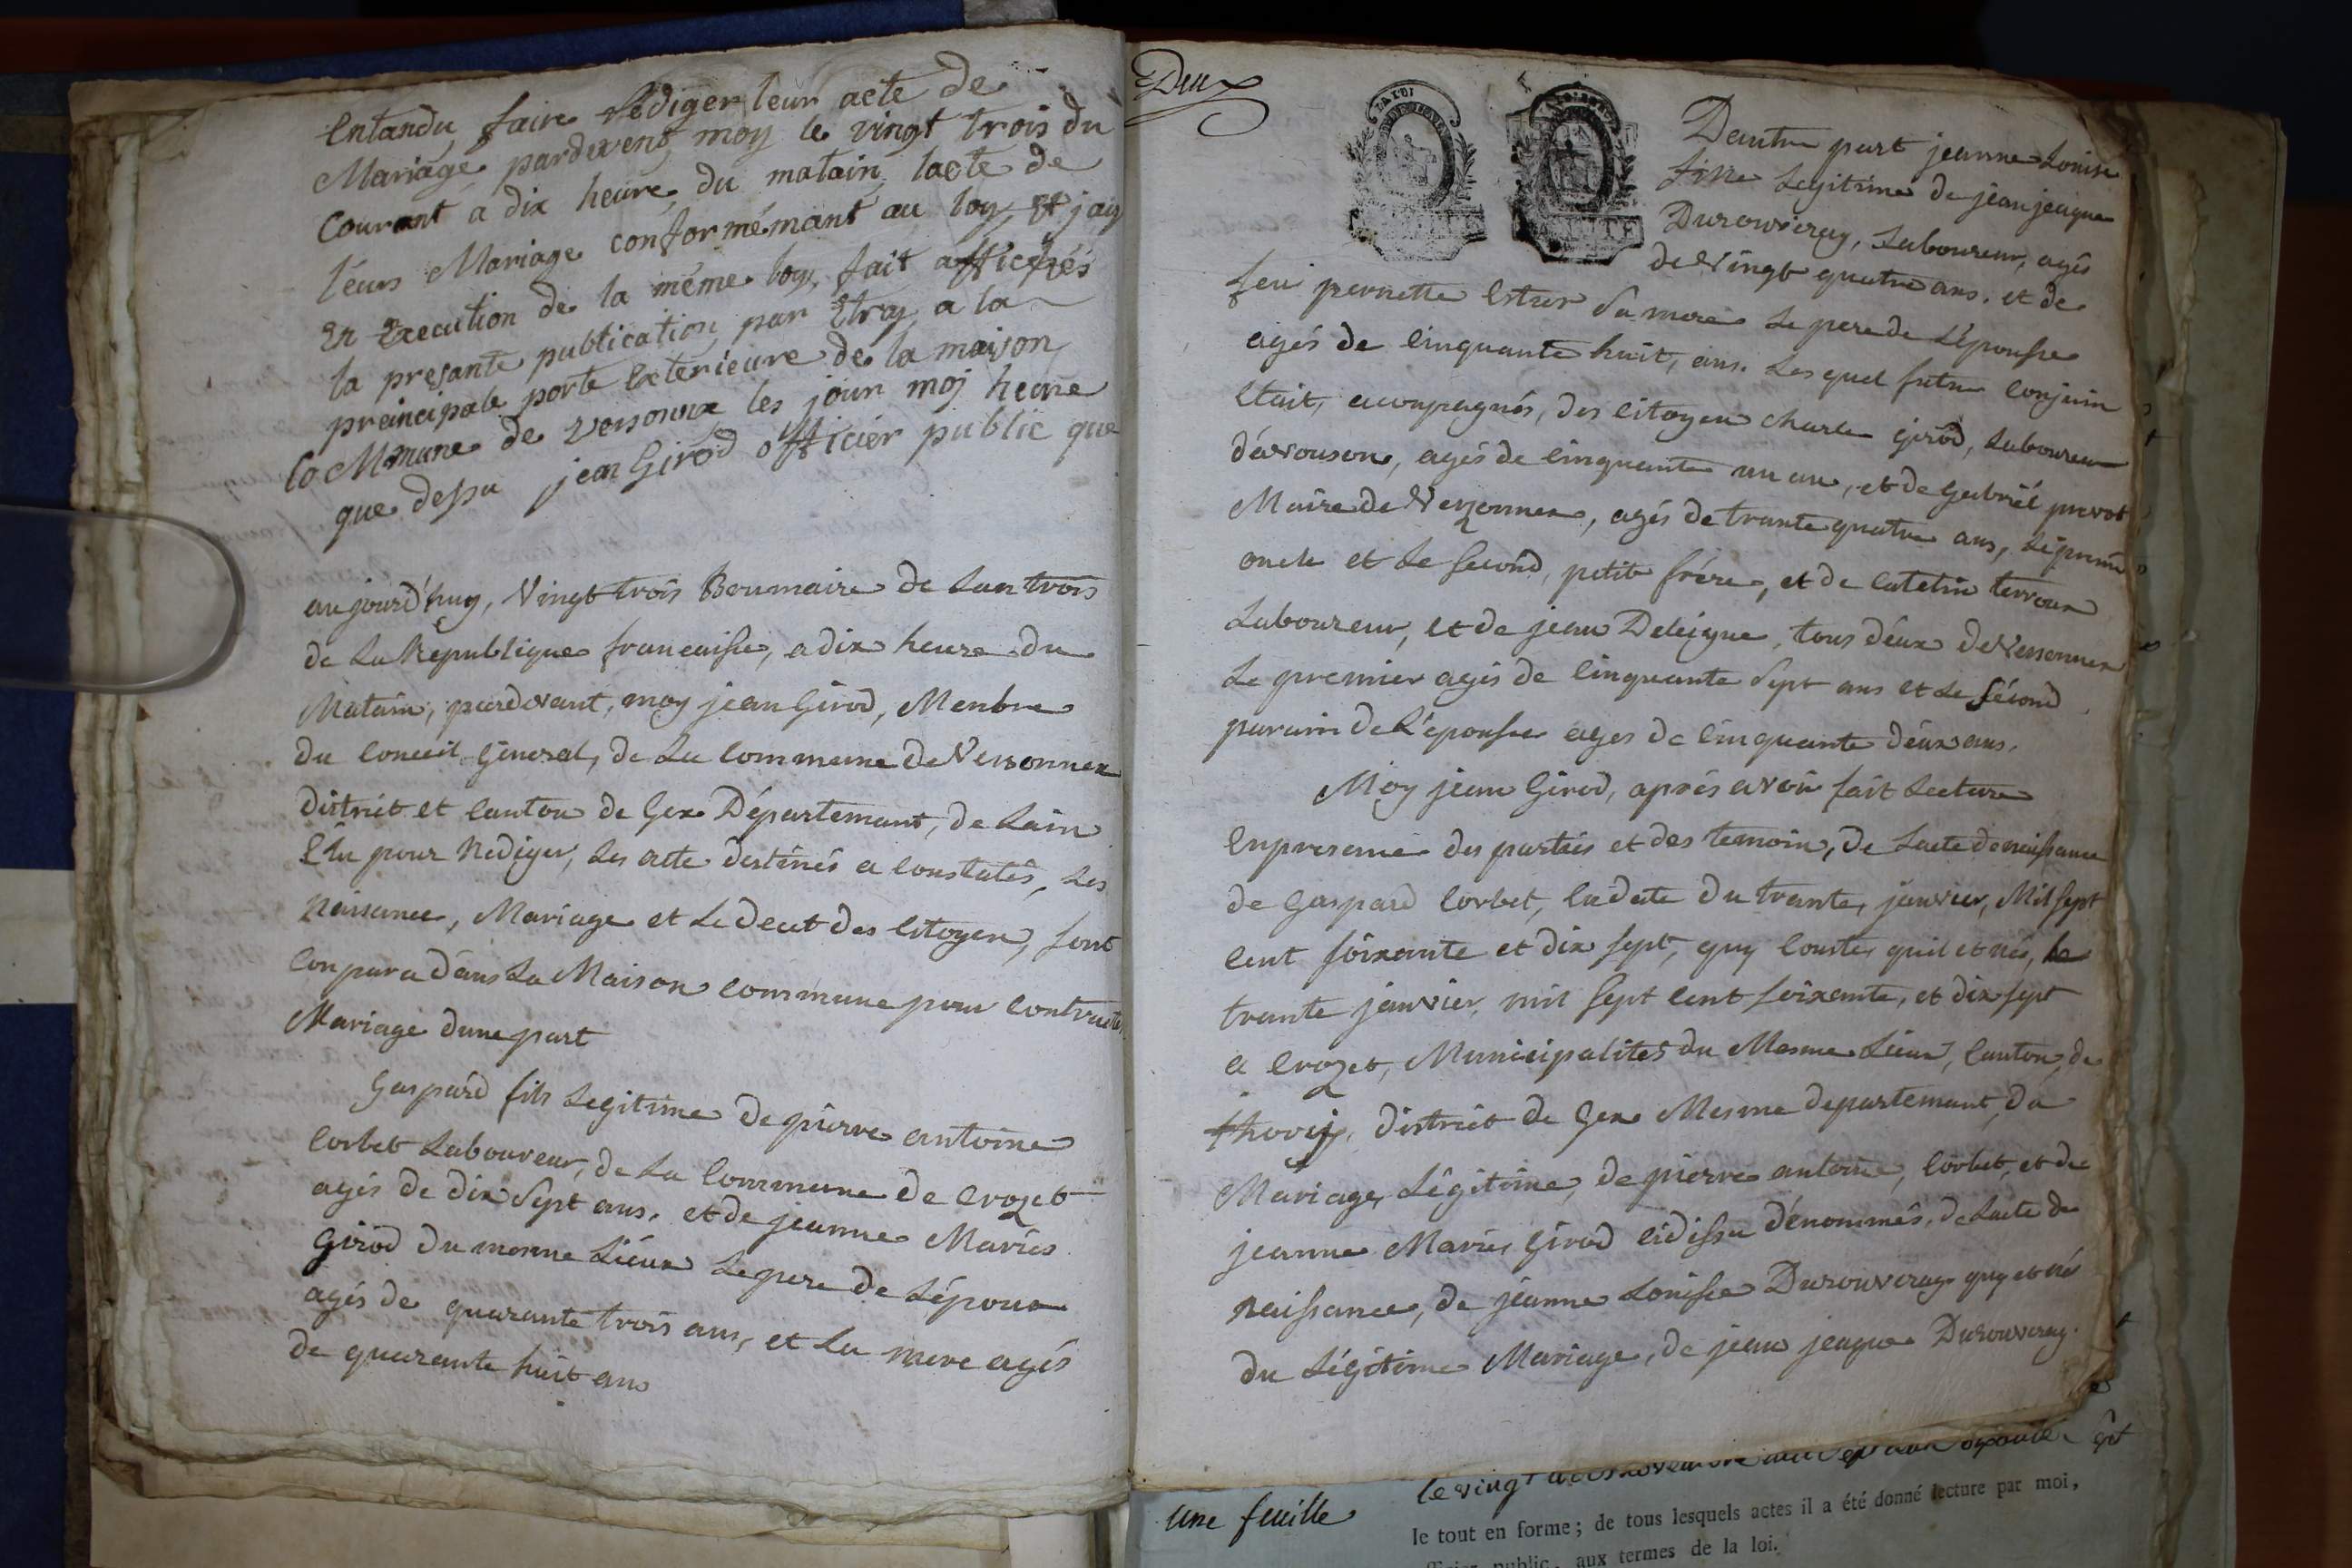 Entandu, faire Rediger leur acte de
Mariage pardevent, moy le vingt trois du
Courant a dix heure, du matain, lacte de
léurs Mariage conformémant au loy, Et jay
En Execution de la méme loy, fait affichés
la presante publication, par Etray, a la
preincipale porte Exterieure de la maison,
Co Mmune de versonnex les jour moj heure
que dessu jean Girod officiér public que
aujourd'huy, Vingt trois Brumaire de Lan trois
de La Republique francaisse, a dix heure du
Matain, pardevant, moy jean Girod, Menbre
du Conceil Géneral, de La Commune de Versonnex
district et Canton de Gex Département, de Lain
Elu pour Rediger, Les acte destinés a Constatés, Les
Naissance, Mariage et Le decet des Citoyen, sont
Conpara dans La Maison Commune pour Contracter
Mariage dune part
Gaspard fils Legitime de pierre antoine
Corbet Laboureur, de La Commune de Crozet
agés de dix Sept ans. et de jeanne Maries
Girod du mesme Liéux Le pere de Lépoux
agés de quarante trois ans, et La mere agés
de quarante huit ans
Deux
LA LOI
Dautre part jeanne Louise
fille Legitime de jean jaque
Durouveray, Laboureur, agés
de Vingt quatre ans. et de
feu pernette Estier Sa mere Le pere de L'épousse
agés de Cinquante huit, ans. Les quel futur Conjoin
Etait, acompagnés, des Citoyen Charle girod, Laboureur
d'avouson, agés de Cinquante un an, et de Gabriél prevot
Maire de Versonnex, agés de trante quatre ans, Le premie
oncle et Le Second, petit frére, et de Catelin terroux
Laboureur, et de jean Deleigue, tous déux de Versonnex
Le premier agés de Cinquante Sept ans et Le Sécond
parain de L'épousse ages de Cinquante déux ans.
Moy jean Girod, aprés avoir fait Lecture
En presence des parties et des temoin, de Lacte de naissance
de Gaspard Corbet, En date du trante, janvier, Mil Sept
Cent soixante et dix sept, quy Conste, quil et nés, le
trante janvier, mil Sept Cent soixante, et dix sept
a Crozet, Municipalites du Mesme Liéux, Canton, de
thoiry, district de Gex Mesme departemant, du
Mariage, Légitime, de pierre antoine, Corbet, et de
jeanne Maries Girod Cidessu dénommés, de Lacte de
Naissance, de jeanne Louisse Durouveray quy et nés
du Légitime Mariage, de jean jaque Durouveray.
une feuille
le vingt
le tout en forme; de tous lesquels actes il a été donné lecture par moi,
public, aux termes de la loi.